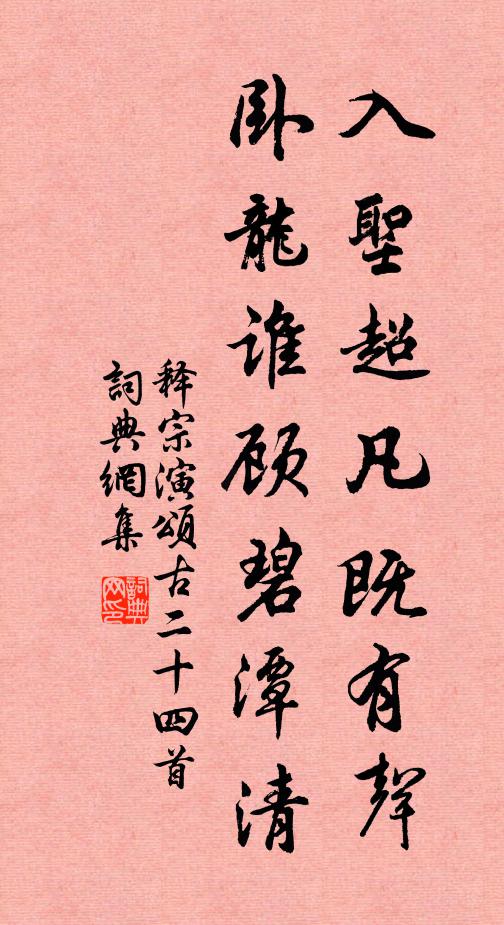 入聖超凡既有聲
卧龍谁顾碧潭清
释宗演頌古二十四首
詞典網集
詞典
网印